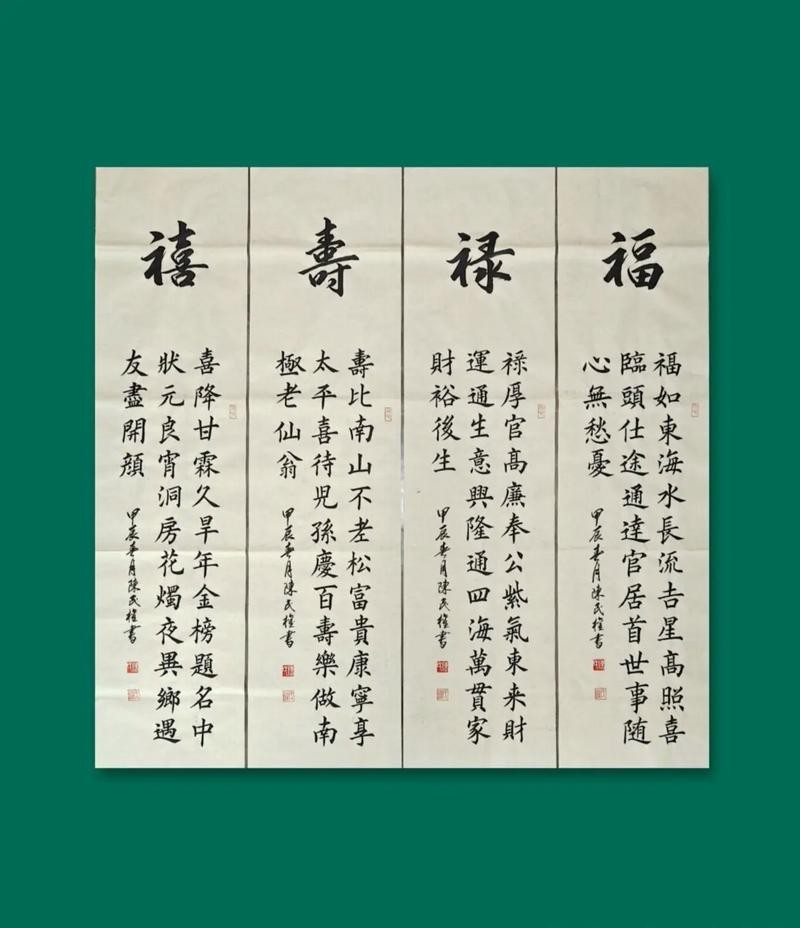 福
福如東海水長流吉星髙照喜
臨頭仕途通達官居首世事随
心無愁憂
甲辰春月陳民權書
禄
禄厚官髙廉奉公紫氣東来財
運通生意興隆通四海萬貫家
財裕後生
甲辰春月陳民權書
壽
壽比南山不老松富貴康寧享
太平喜待児孫慶百壽樂做南
極老仙翁
甲辰春月陳民權書
禧
喜降甘霖久旱年金榜題名中
狀元良宵洞房花燭夜異鄉遇
友盡開顔
甲辰春月陳民權書